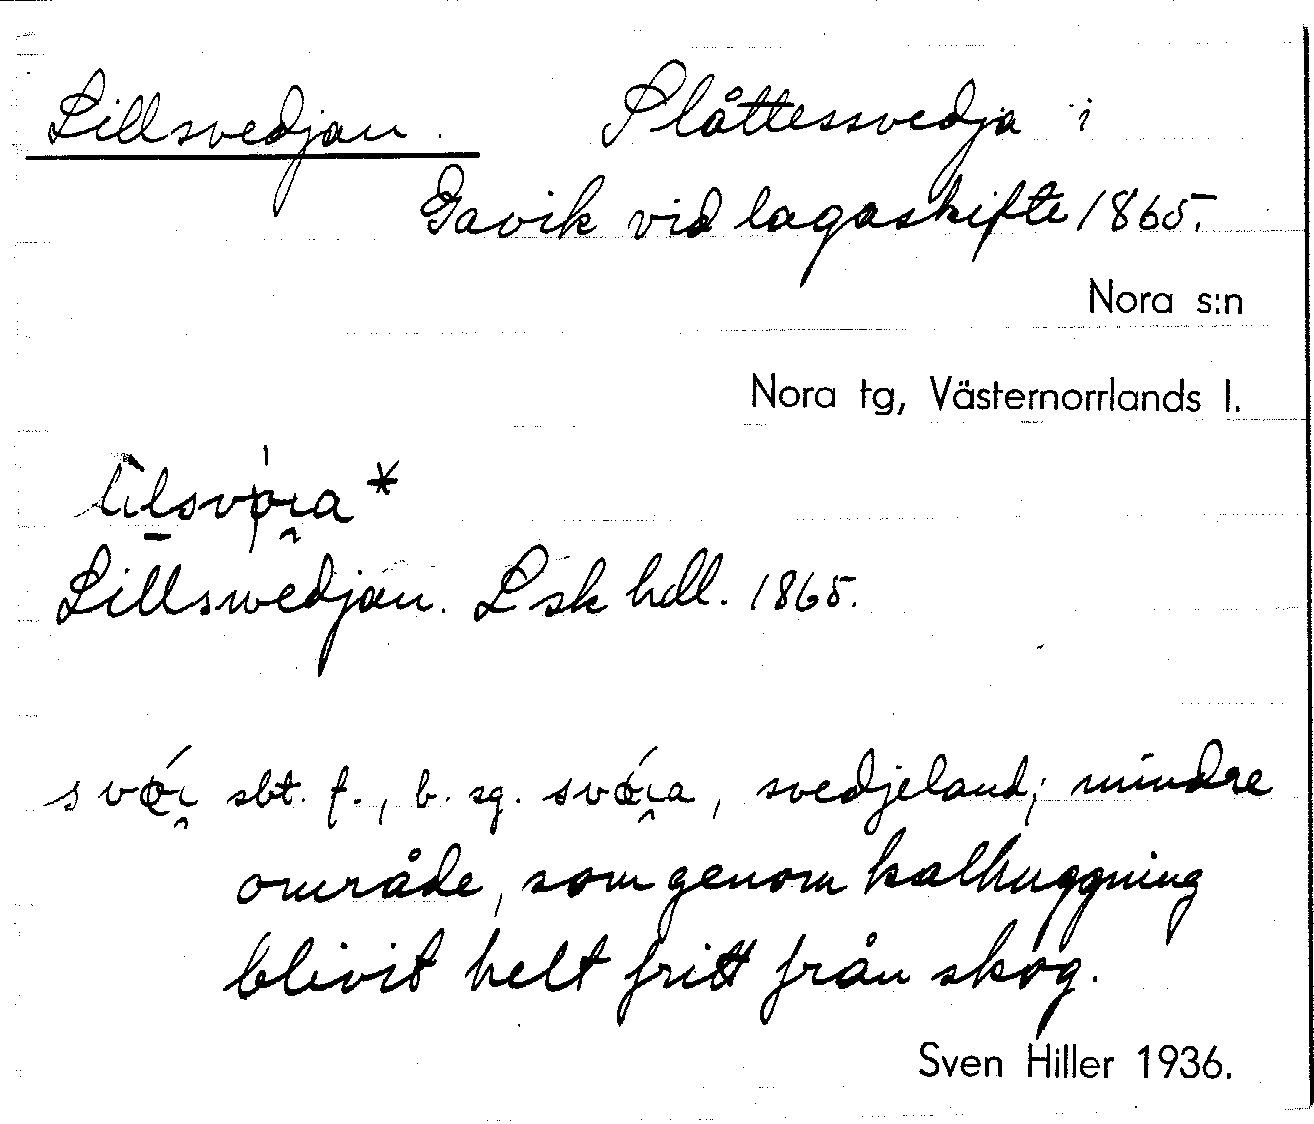 Lillsvedjan. Slåttessvedja i
Gavik vid lagaskifte 1865.
Nora s:n
Nora tg, Västernorrlands l.
Lillswedjan. Lsk hdl. 1865.
sbt. f., b. sg. , svedjeland; mindre
område, som genom kalhuggning
blivit helt fritt från skog.
Sven Hiller 1936.